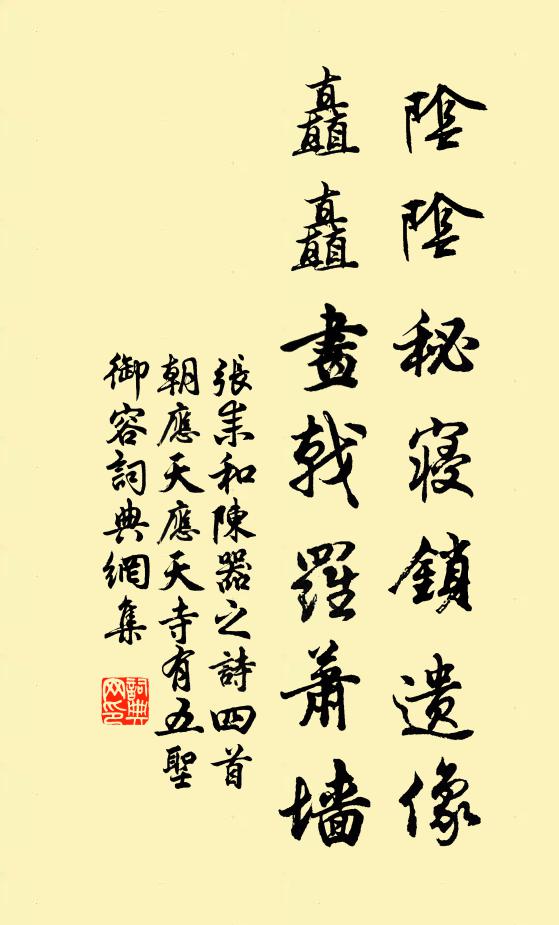 陰陰秘寢鎖遺像
矗矗畫戟羅蕭墻
張耒和陳器之詩四首
朝應天應天寺有五聖
御容詞典網集
詞典网印